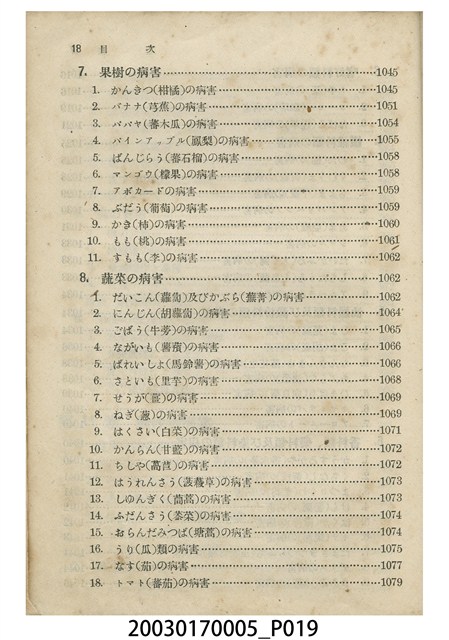 18 目 次
7. 果樹の病害 1045
1. かんきつ(柑橘)の病害 1045
2. バナナ(芎蕉)の病害 1051
3. パパヤ(蕃木瓜)の病害 1054
4. パインアップル(鳳梨)の病害 1055
5. ばんじらう(蕃石榴)の病害 1058
6. マンゴウ(檬果)の病害 1058
7. アボカードの病害 1059
8. ぶだう(葡萄)の病害 1059
9. かき(柿)の病害 1060
10. もも(桃)の病害 1061
11. すもも(李)の病害 1062
8. 蔬菜の病害 1062
1. だいこん(蘿蔔)及びかぶら(蕪菁)の病害 1062
2. にんじん(胡蘿蔔)の病害 1064
3. ごばう(牛蒡)の病害 1065
4. ながいも(薯蕷)の病害 1066
5. ばれいしょ(馬鈴薯)の病害 1066
6. さといも(里芋)の病害 1068
7. せうが(薑)の病害 1069
8. ねぎ(葱)の病害 1069
9. はくさい(白菜)の病害 1071
10. かんらん(甘藍)の病害 1072
11. ちしや(萵苣)の病害 1072
12. はうれんさう(菠薐草)の病害 1073
13. しゆんぎく(茼蒿)の病害 1073
14. ふだんさう(菾菜)の病害 1074
15. おらんだみつば(塘蒿)の病害 1074
16. うり(瓜)類の病害 1075
17. なす(茄)の病害 1077
18. トマト(蕃茄)の病害 1079
20030170005_P019